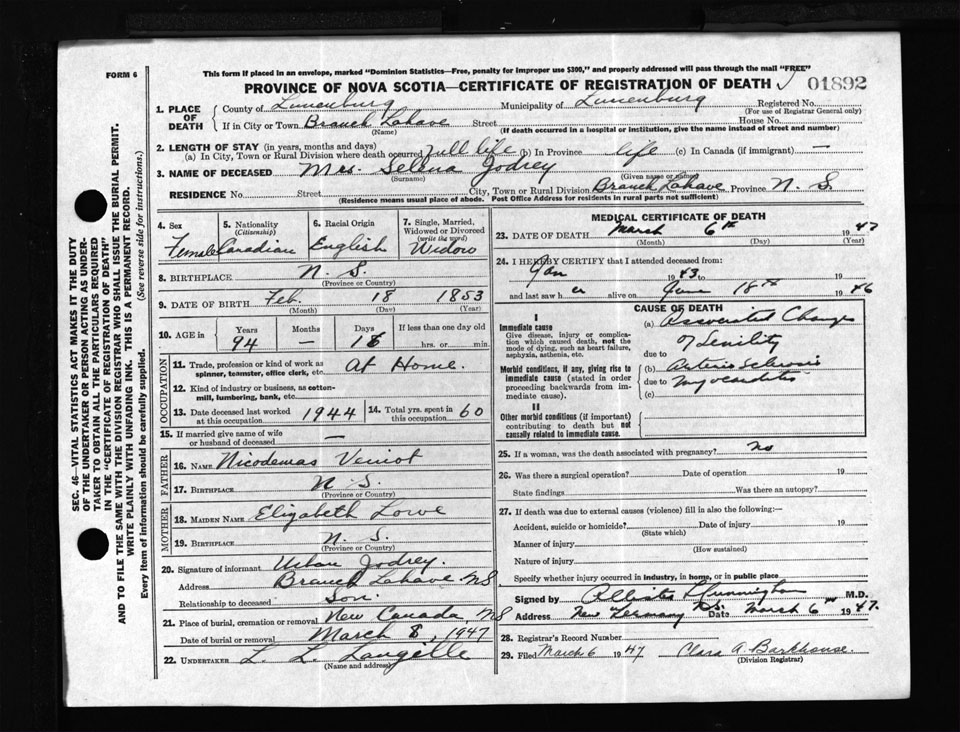 FORM 6
This form if placed in an envelope, marked "Dominion Statistics—Free, penalty for improper use $300," and properly addressed will pass through the mail "FREE"
PROVINCE OF NOVA SCOTIA—CERTIFICATE OF REGISTRATION OF DEATH
01892
SEC. 46—VITAL STATISTICS ACT MAKES IT THE DUTY
OF THE UNDERTAKER OR PERSON ACTING AS UNDER-
TAKER TO OBTAIN ALL THE PARTICULARS REQUIRED
IN THE "CERTIFICATE OF REGISTRATION OF DEATH"
AND TO FILE THE SAME WITH THE DIVISION REGISTRAR WHO SHALL ISSUE THE BURIAL PERMIT.
WRITE PLAINLY WITH UNFADING INK. THIS IS A PERMANENT RECORD.
Every item of information should be carefully supplied. (See reverse side for instructions.)
1. PLACE OF DEATH
County of Lunenburg Municipality of Lunenburg Registered No.
(For use of Registrar General only)
If in City or Town Branch Lahave Street House No.
(Name) (If death occurred in a hospital or institution, give the name instead of street and number)
2. LENGTH OF STAY (in years, months and days)
(a) In City, Town or Rural Division where death occurred full life (b) In Province life (c) In Canada (if immigrant) —
3. NAME OF DECEASED Mrs. Selena Jodrey
(Surname) (Given name or names)
RESIDENCE No. Street City, Town or Rural Division Branch Lahave Province N. S.
(Residence means usual place of abode. Post Office Address for residents in rural parts not sufficient)
4. Sex
Female
5. Nationality (Citizenship)
Canadian
6. Racial Origin
English
7. Single, Married, Widowed or Divorced (write the word)
Widow
8. BIRTHPLACE N. S.
(Province or Country)
9. DATE OF BIRTH Feb. 18 1853
(Month) (Day) (Year)
10. AGE in
Years Months Days If less than one day old
94 — 16 hrs. or min.
OCCUPATION
11. Trade, profession or kind of work as spinner, teamster, office clerk, etc. At Home.
12. Kind of industry or business, as cotton-mill, lumbering, bank, etc.
13. Date deceased last worked at this occupation 1944
14. Total yrs. spent in this occupation 60
15. If married give name of wife or husband of deceased —
FATHER
16. NAME Nicodemas Veniot
17. BIRTHPLACE N. S.
(Province or Country)
MOTHER
18. MAIDEN NAME Elizabeth Lowe
19. BIRTHPLACE N. S.
(Province or Country)
20. Signature of informant Urban Jodrey.
Address Branch Lahave. NS
Relationship to deceased Son.
21. Place of burial, cremation or removal New Canada, NS
Date of burial or removal March 8, 1947
22. UNDERTAKER L. L. Langille
(Name and address)
MEDICAL CERTIFICATE OF DEATH
23. DATE OF DEATH March 6th 1947
(Month) (Day) (Year)
24. I HEREBY CERTIFY that I attended deceased from:
Jan 1943 to 19
and last saw her alive on June 18th 1946
CAUSE OF DEATH
I
Immediate cause
Give disease, injury or complication which caused death, not the mode of dying, such as heart failure, asphyxia, asthenia, etc.
(a) Associated Changes
of Senility
due to
Morbid conditions, if any, giving rise to immediate cause (stated in order proceeding backwards from immediate cause).
(b) Arterio Sclerosis
due to myocarditis
(c)
II
Other morbid conditions (if important) contributing to death but not causally related to immediate cause.
25. If a woman, was the death associated with pregnancy? no
26. Was there a surgical operation? Date of operation 19
State findings Was there an autopsy?
27. If death was due to external causes (violence) fill in also the following:—
Accident, suicide or homicide? Date of injury 19
(State which)
Manner of injury
(How sustained)
Nature of injury
Specify whether injury occurred in industry, in home, or in public place
Signed by M.D.
Address New Germany NS. Date March 6th 1947.
28. Registrar's Record Number
29. Filed March 6 1947 Clara A. Barkhouse.
(Division Registrar)